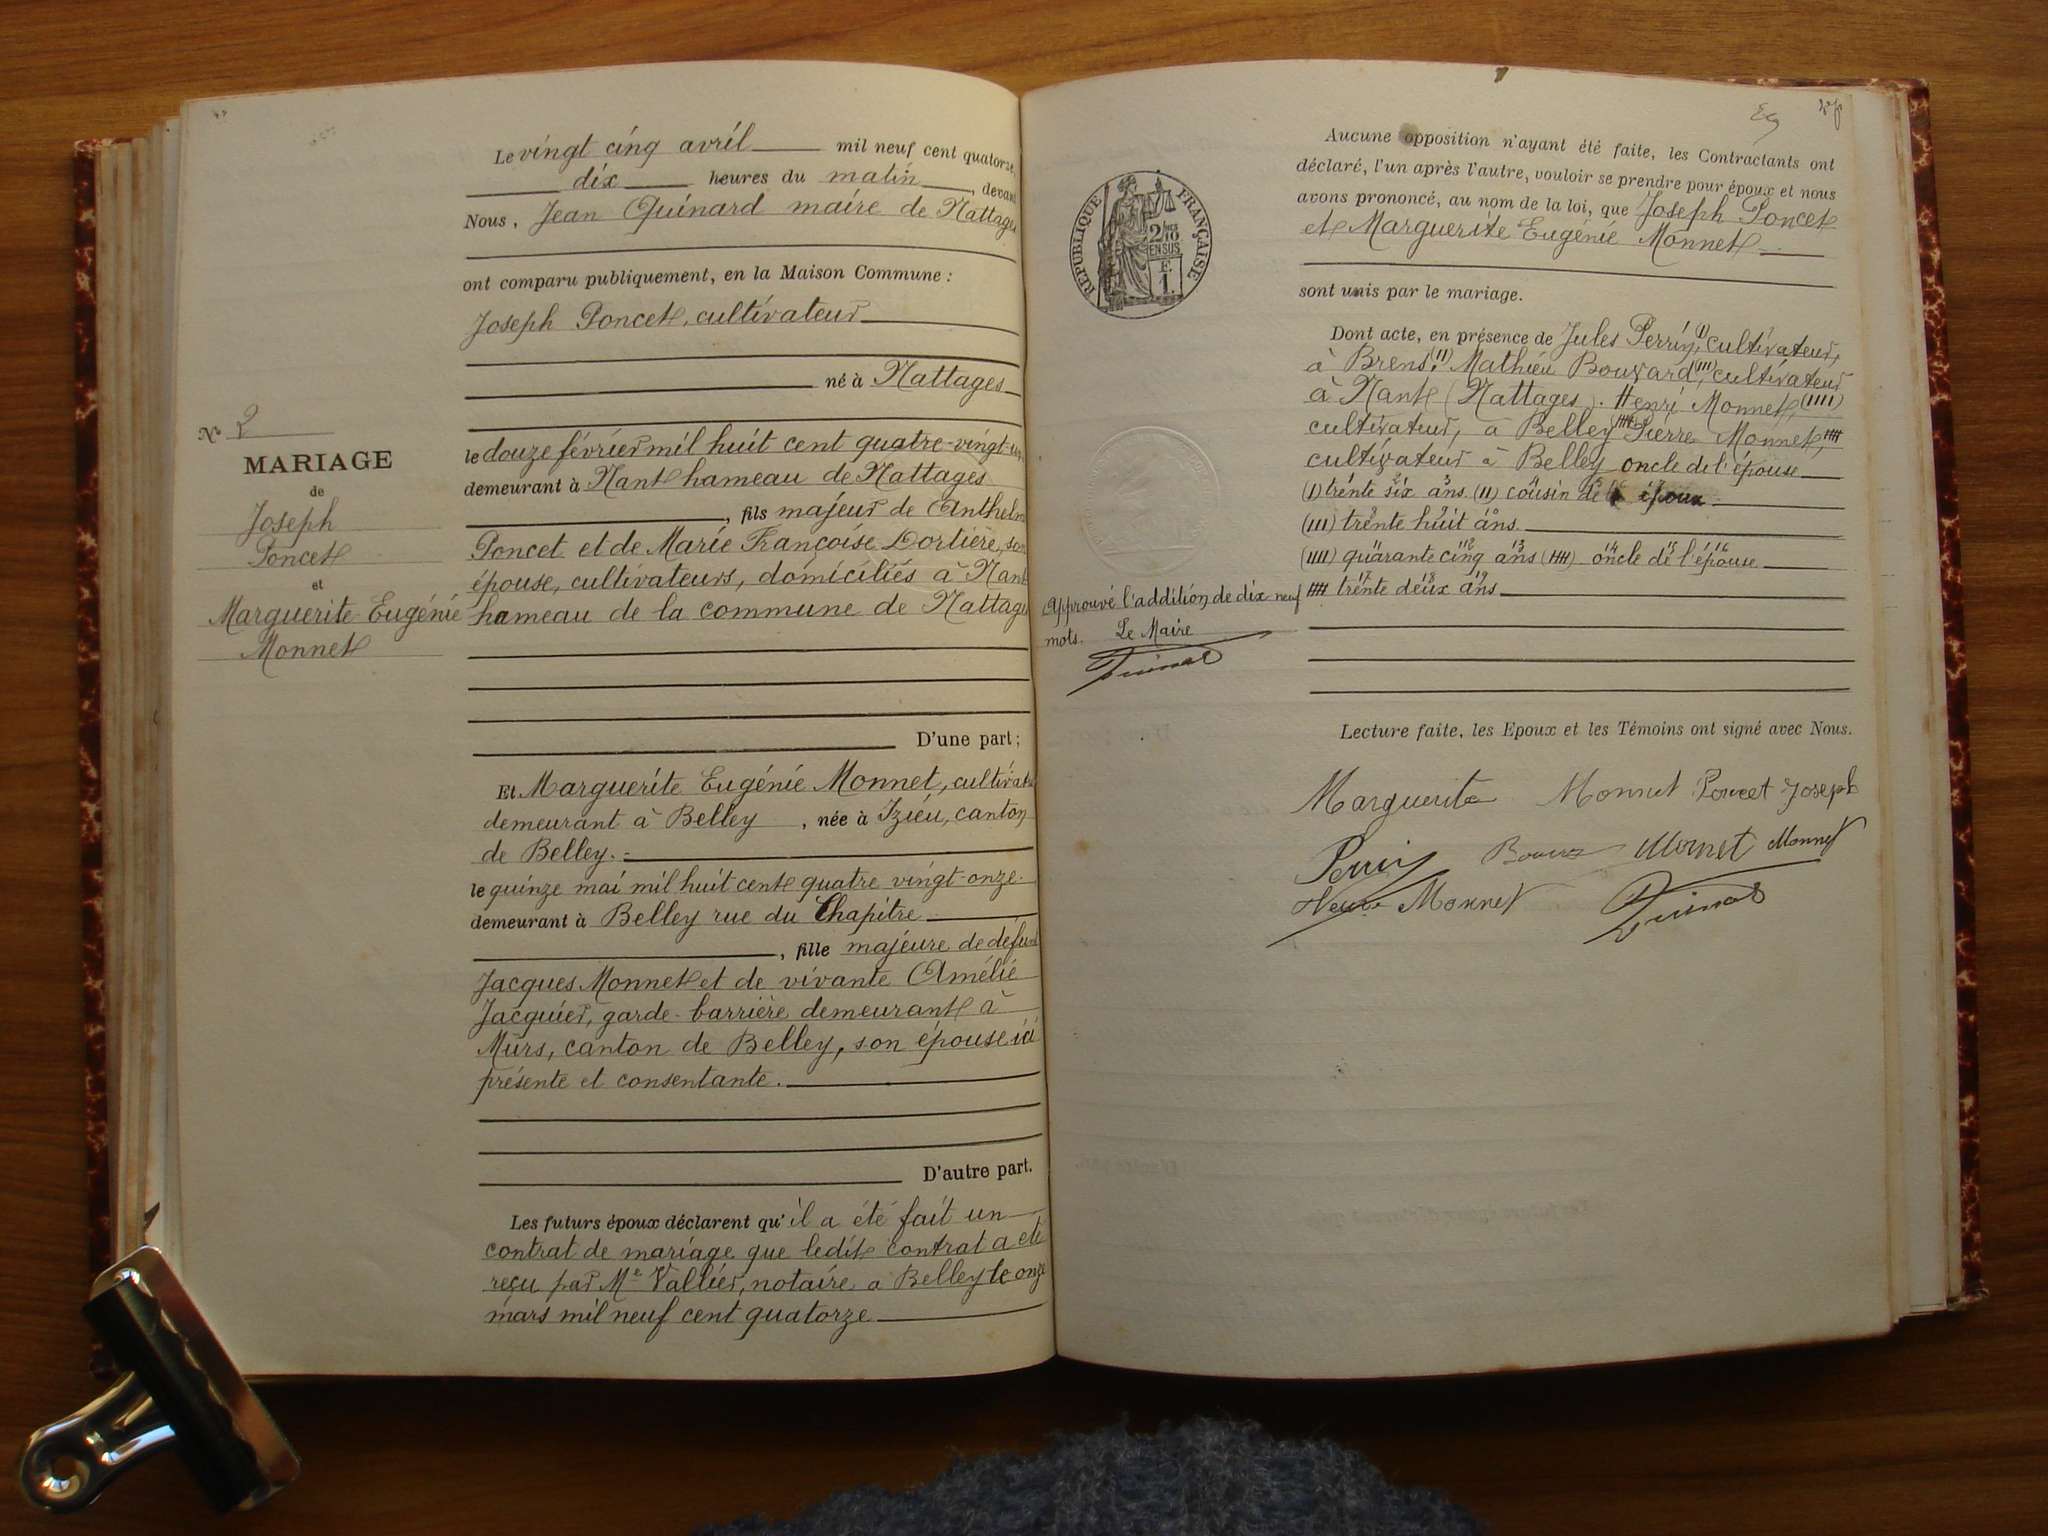 Le vingt cinq avril mil neuf cent quatorze,
dix heures du matin, devant
Nous, Jean Quinard maire de Nattages
ont comparu publiquement, en la Maison Commune :
Joseph Poncet, cultivateur
né à Nattages
le douze février mil huit cent quatre-vingt-un
demeurant à Nant hameau de Nattages
, fils majeur de Anthelm
Poncet et de Marie Françoise Dortière, son
épouse, cultivateurs, domiciliés à Nant
hameau de la commune de Nattages
D'une part ;
Et Marguerite Eugénie Monnet, cultivat
demeurant à Belley, née à Izieu, canton
de Belley.
le quinze mai mil huit cent quatre vingt-onze
demeurant à Belley rue du Chapitre
, fille majeure de défunt
Jacques Monnet et de vivante Amélie
Jacquier, garde-barrière demeurant à
Murs, canton de Belley, son épouse ici
présente et consentante.
D'autre part.
Les futurs époux déclarent qu'il a été fait un
contrat de mariage que ledit contrat a été
reçu par Me Vallier, notaire a Belley le onze
mars mil neuf cent quatorze
No 2
MARIAGE
de
Joseph
Poncet
et
Marguerite Eugénie
Monnet
RÉPUBLIQUE FRANÇAISE
2/10
EN SUS
F.
1.
Aucune opposition n'ayant été faite, les Contractants ont
déclaré, l'un après l'autre, vouloir se prendre pour époux et nous
avons prononcé, au nom de la loi, que Joseph Poncet
et Marguerite Eugénie Monnet
sont unis par le mariage.
Dont acte, en présence de Jules Perrin,(I) cultivateur,
à Brens(II). Mathieu Bouvard(III), cultivateur
à Nant (Nattages). Henri Monnet,(IIII)
cultivateur, a Belley Pierre Monnet,
cultivateur à Belley oncle de l'épouse
(I) trente six ans. (II) cousin de l'époux
(III) trente huit ans.
(IIII) quarante cinq ans oncle de l'épouse
trente deux ans
Approuvé l'addition de dix neuf
mots. Le Maire
Lecture faite, les Epoux et les Témoins ont signé avec Nous.
Marguerite Monnet Poncet Joseph
Perrin Monnet Monnet
Henri Monnet